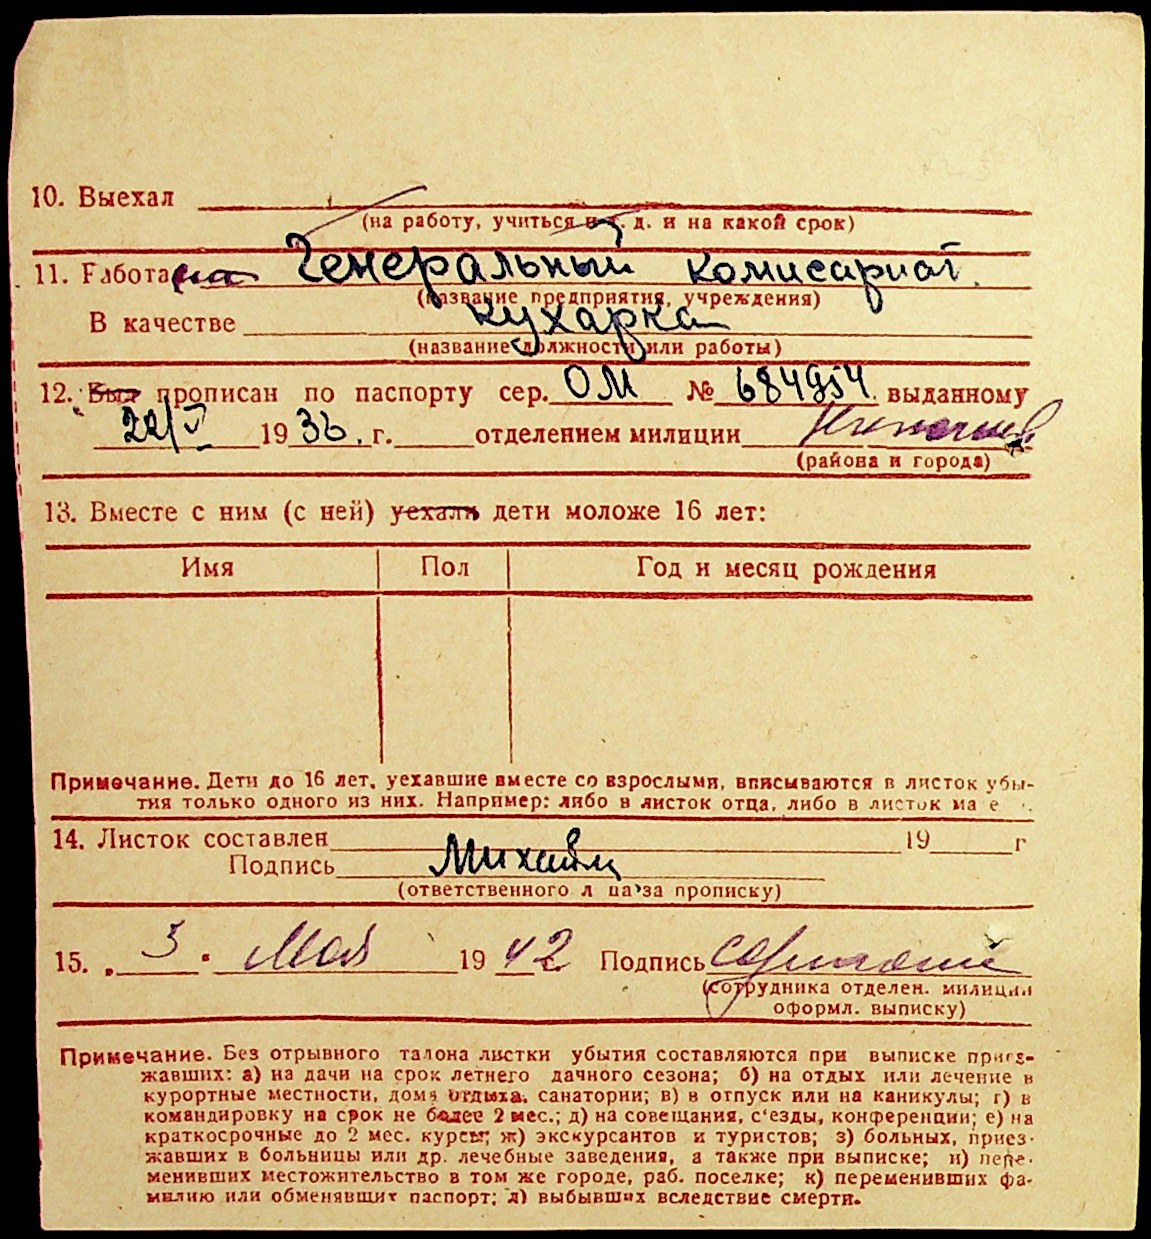 10. Выехал
(на работу, учиться и т. д. и на какой срок)
11. Работа на Генеральный комисариат.
(название предприятия, учреждения)
В качестве кухарка
(название должности или работы)
12. Был прописан по паспорту сер. ОМ № 684954 выданному
22/V 1936, г. отделением милиции
(района и города)
13. Вместе с ним (с ней) уехали дети моложе 16 лет:
Имя Пол Год и месяц рождения
Примечание. Дети до 16 лет, уехавшие вместе со взрослыми, вписываются в листок убы-
тия только одного из них. Например: либо в листок отца, либо в листок
14. Листок составлен 19 г
Подпись
(ответственного л ца за прописку)
15. „ 3 " Мая 1942 Подпись
(сотрудника отделен. милиции
оформл. выписку)
Примечание. Без отрывного талона листки убытия составляются при выписке приез-
жавших: а) на дачи на срок летнего дачного сезона; б) на отдых или лечение в
курортные местности, дома отдыха, санатории; в) в отпуск или на каникулы; г) в
командировку на срок не более 2 мес.; д) на совещания, с'езды, конференции; е) на
краткосрочные до 2 мес. курсы; ж) экскурсантов и туристов; з) больных, приез-
жавших в больницы или др. лечебные заведения, а также при выписке; и) пере-
менивших местожительство в том же городе, раб. поселке; к) переменивших фа-
милию или обменявших паспорт; л) выбывших вследствие смерти.